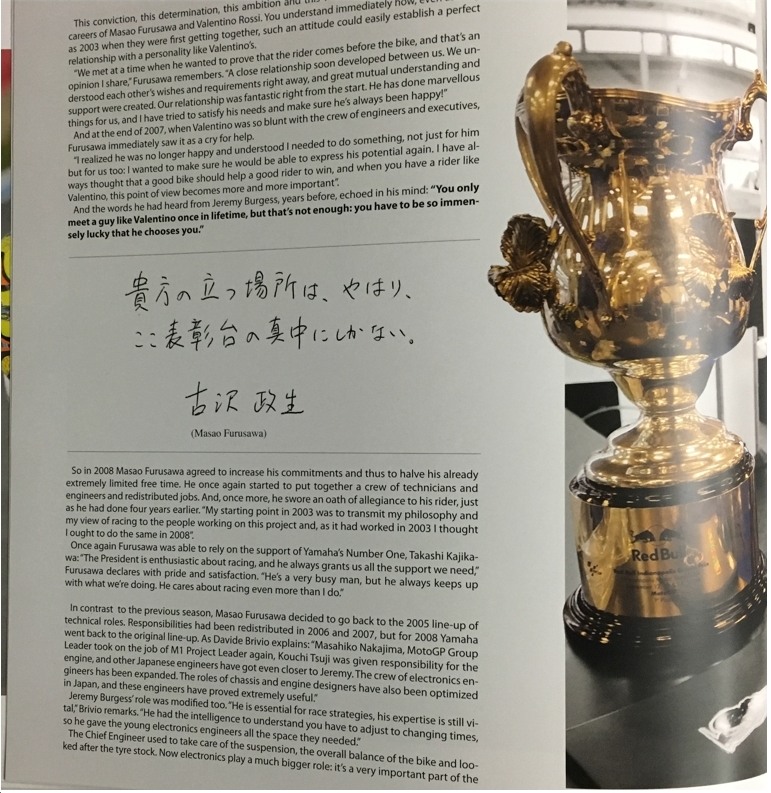 This conviction, this determination, this ambition and
careers of Masao Furusawa and Valentino Rossi. You understand immediately how,
as 2003 when they were first getting together, such an attitude could easily establish a perfect
relationship with a personality like Valentino's.
"We met at a time when he wanted to prove that the rider comes before the bike, and that's an
opinion I share," Furusawa remembers. "A close relationship soon developed between us. We un-
derstood each other's wishes and requirements right away, and great mutual understanding and
support were created. Our relationship was fantastic right from the start. He has done marvellous
things for us, and I have tried to satisfy his needs and make sure he's always been happy!"
And at the end of 2007, when Valentino was so blunt with the crew of engineers and executives,
Furusawa immediately saw it as a cry for help.
"I realized he was no longer happy and understood I needed to do something, not just for him
but for us too: I wanted to make sure he would be able to express his potential again. I have al-
ways thought that a good bike should help a good rider to win, and when you have a rider like
Valentino, this point of view becomes more and more important".
And the words he had heard from Jeremy Burgess, years before, echoed in his mind: "You only
meet a guy like Valentino once in lifetime, but that's not enough: you have to be so immen-
sely lucky that he chooses you."
貴方の立つ場所は、やはり、
ここ表彰台の真中にしかない。
古沢 政生
(Masao Furusawa)
So in 2008 Masao Furusawa agreed to increase his commitments and thus to halve his already
extremely limited free time. He once again started to put together a crew of technicians and
engineers and redistributed jobs. And, once more, he swore an oath of allegiance to his rider, just
as he had done four years earlier. "My starting point in 2003 was to transmit my philosophy and
my view of racing to the people working on this project and, as it had worked in 2003 I thought
I ought to do the same in 2008".
Once again Furusawa was able to rely on the support of Yamaha's Number One, Takashi Kajika-
wa: "The President is enthusiastic about racing, and he always grants us all the support we need,"
Furusawa declares with pride and satisfaction. "He's a very busy man, but he always keeps up
with what we're doing. He cares about racing even more than I do."
In contrast to the previous season, Masao Furusawa decided to go back to the 2005 line-up of
technical roles. Responsibilities had been redistributed in 2006 and 2007, but for 2008 Yamaha
went back to the original line-up. As Davide Brivio explains: "Masahiko Nakajima, MotoGP Group
Leader took on the job of M1 Project Leader again, Kouchi Tsuji was given responsibility for the
engine, and other Japanese engineers have got even closer to Jeremy. The crew of electronics en-
gineers has been expanded. The roles of chassis and engine designers have also been optimized
in Japan, and these engineers have proved extremely useful."
Jeremy Burgess' role was modified too. "He is essential for race strategies, his expertise is still vi-
tal," Brivio remarks. "He had the intelligence to understand you have to adjust to changing times,
so he gave the young electronics engineers all the space they needed."
The Chief Engineer used to take care of the suspension, the overall balance of the bike and loo-
ked after the tyre stock. Now electronics play a much bigger role: it's a very important part of the
RedBull